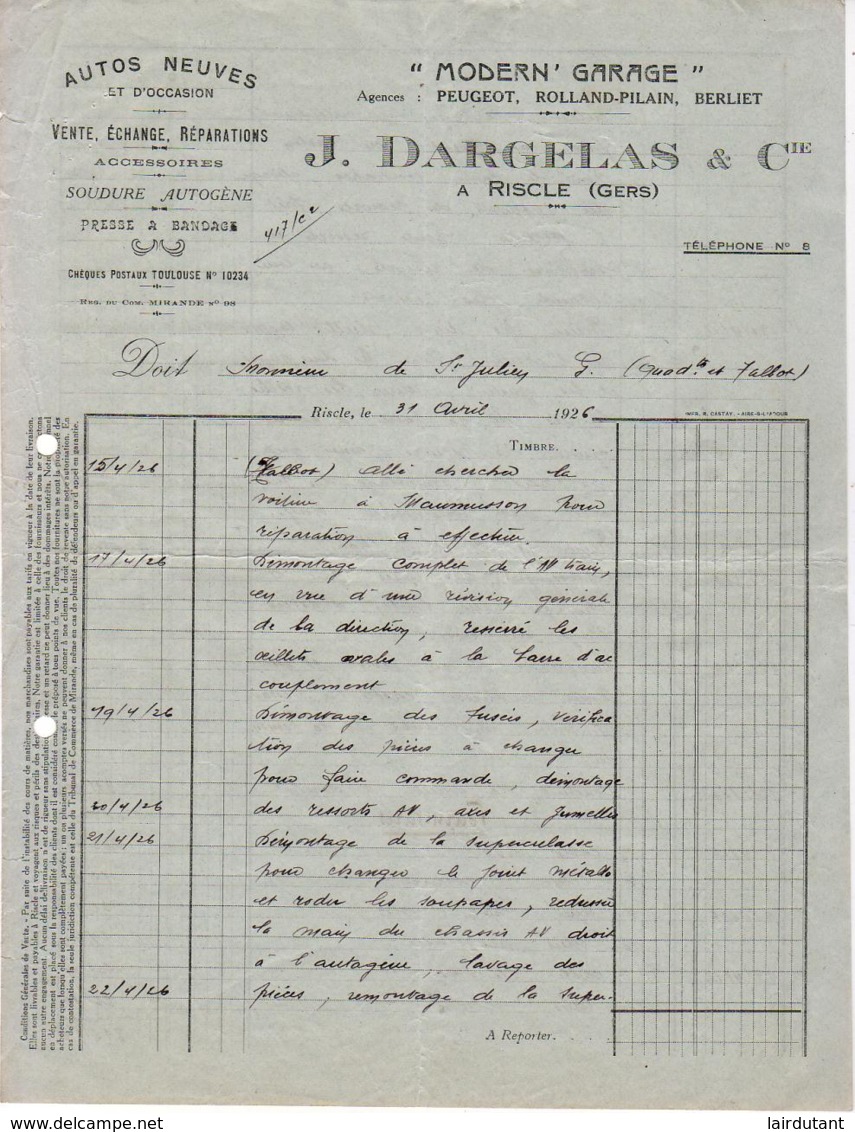 AUTOS NEUVES
ET D'OCCASION
VENTE, ÉCHANGE, RÉPARATIONS
ACCESSOIRES
SOUDURE AUTOGÈNE
PRESSE A BANDAGE
CHÈQUES POSTAUX TOULOUSE No 10234
REG. DU COM. MIRANDE No 98
" MODERN' GARAGE "
Agences : PEUGEOT, ROLLAND-PILAIN, BERLIET
J. DARGELAS & CIE
A RISCLE (GERS)
TÉLÉPHONE No 8
Doit Monsieur de St Julien G. (Quad.te et Talbot)
Riscle, le 31 Avril 1926
IMP. R. CASTAY. - AIRE-S-L'ADOUR
TIMBRE.
15/4/26 (Talbot) allé chercher la
voiture à Maumusson pour
réparation à effectuer.
17/4/26 Démontage complet de l'AV train,
en vue d'une révision générale
de la direction, resserré les
œillets ovales à la barre d'ac
couplement
19/4/26 Démontage des fusées, vérifica
tion des pièces à changer
pour faire commande, démontage
20/4/26 des ressorts AV, axes et jumelles
21/4/26 Démontage de la superculasse
pour changer le joint métallo
et roder les soupapes, redressé
la main du chassis AV droit
à l'autogène, lavage des
22/4/26 pièces, remontage de la super-
A Reporter.
Conditions Générales de Vente. - Par suite de l'instabilité des cours de matières, nos marchandises sont payables aux tarifs en vigueur à la date de leur livraison.
Elles sont livrables et payables à Riscle et voyagent aux risques et périls des Notre garantie est limitée à celle des fournisseurs et nous ne
aucun autre engagement. Aucun délai de livraison n'est de rigueur sans stipulation et un retard ne peut donner lieu à des dommages intérêts.
en déplacement est placé sous la responsabilité des clients dont il est considéré le préposé à tous points de vue. Toutes nos fournitures ne sont la propriété des
acheteurs que lorsqu'elles sont complètement payées ; un ou plusieurs acomptes versés ne peuvent donner à nos clients le droit de revente sans notre autorisation. En
cas de contestation, la seule juridiction compétente est celle du Tribunal de Commerce de Mirande, même en cas de pluralité de défendeurs ou d'appel en garantie.
lairdutant